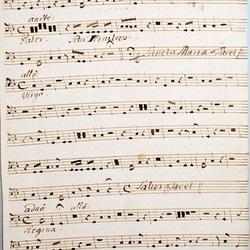 andte
Pater. Sta Trinitas
Sancta Maria Tacet
allo
Virgo
Salus Tacet
adao allo
Regina